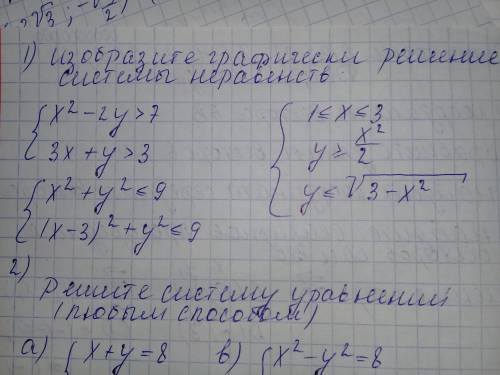 √3; -√1/2)
1) изобразите графически решение
системы неравенств:
{ x² - 2y > 7
3x + y > 3
{ x² + y² ≤ 9
(x-3)² + y² ≤ 9
{ 1 ≤ x ≤ 3
y ≥ x²/2
y ≤ √3 - x²
2)
Решите систему уравнений
(любым способом)
а) { x + y = 8
в) { x² - y² = 8